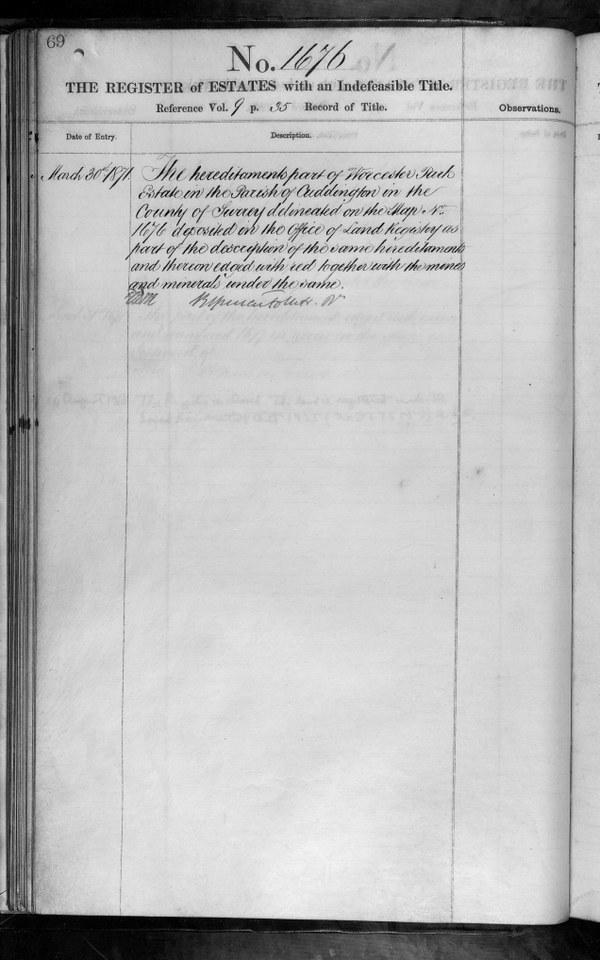 69
No. 1676
THE REGISTER of ESTATES with an Indefeasible Title.
Reference Vol. 9 p. 35 Record of Title.
Observations.
Date of Entry.
Description.
March 30th 1871.
The hereditaments part of Worcester Park
Estate in the Parish of Cuddington in the
County of Surrey delineated on the Map No.
1676 deposited in the Office of Land Registry as
part of the description of the same hereditaments
and thereon edged with red together with the mines
and minerals under the same.